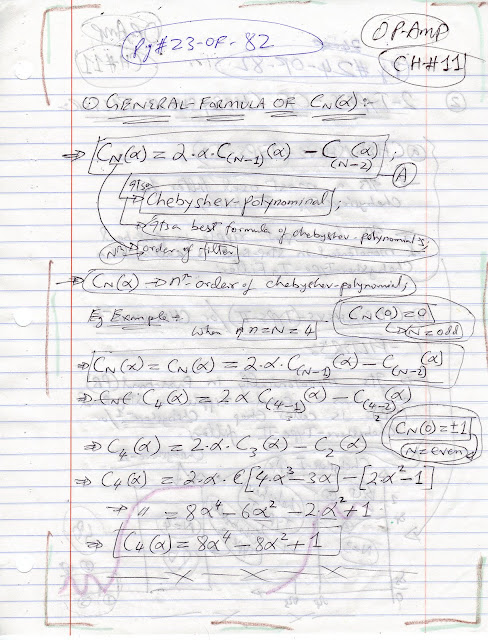 Pg#23-OF-82
OP-AMP
CH-#11
⊙ GENERAL-FORMULA OF C_N(α):-
⇒ C_N(α) = 2·α·C_(N-1)(α) - C_(N-2)(α) ;
A
Its a
→ Chebyshev-polynominal;
→ Its a best formula of chebyshev-polynominals;
N ⇒ order of filter
⇒ C_N(α) → nth-order of chebyshev-polynominals;
Eg Example:-
when n=N=4
C_N(0)=0
→ N=odd
⇒ C_N(α) = C_N(α) = 2·α·C_(N-1)(α) - C_(N-2)(α)
⇒ C_4(α) = 2α C_(4-1)(α) - C_(4-2)(α)
3 2
C_N(0)=±1
N=even
⇒ C_4(α) = 2·α·C_3(α) - C_2(α)
⇒ C_4(α) = 2·α·[4·α³-3α]-[2·α²-1]
→ " = 8α⁴-6α²-2·α²+1
⇒ C_4(α) = 8α⁴-8α²+1